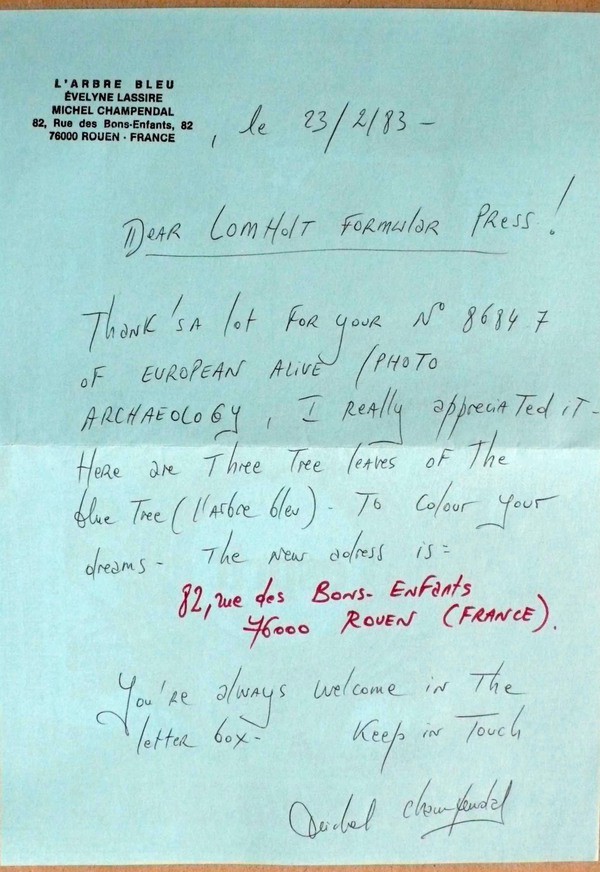 L'ARBRE BLEU
ÉVELYNE LASSIRE
MICHEL CHAMPENDAL
82, Rue des Bons-Enfants, 82
76000 ROUEN - FRANCE
, le 23/2/83 -
DEAR LOMHOLT FORMULAR PRESS!
Thank'sa lot FOR your N° 8684 7
OF EUROPEAN ALIVE / PHOTO
ARCHAEOLOGY, I REALLY appreciated it -
Here are Three Tree leaves OF The
blue Tree (l'Arbre bleu) - To Colour your
dreams - The new adress is =
82, rue des Bons-Enfants
76000 ROUEN (FRANCE).
You're always welcome in The
letter box - Keep in Touch
Michel Champendal